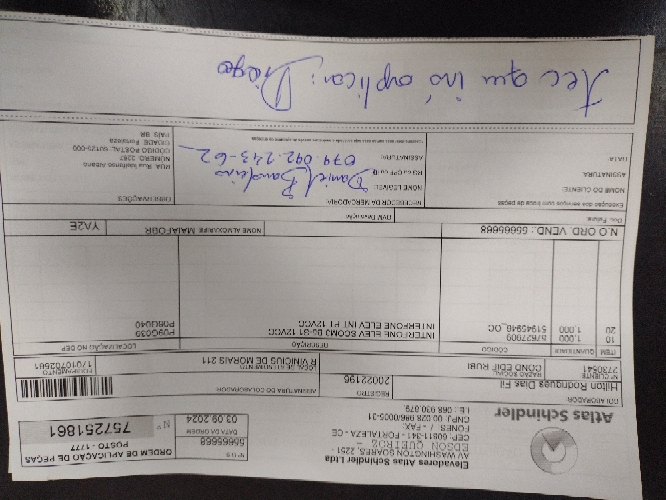 Atlas Schindler
Elevadores Atlas Schindler Ltda
AV WASHINGTON SOARES, 2251 -
EDSON QUEIROZ -
CEP: 60811-341 - FORTALEZA - CE
FONES / - FAX:
CNPJ: 00.028.986/0005-31
I.E.: 068.030.879
Nº O.S
55665668
DATA DA ORDEM
03.09.2024
ORDEM DE APLICAÇÃO DE PEÇAS
POSTO - 1777
Nº 757251861
COLABORADOR
Hilton Rodrigues Dias Fil
REGISTRO
20022196
ASSINATURA DO COLABORADOR
Nº CLIENTE
2730541
RAZÃO SOCIAL
COND EDIF RUBI
LOCAL DE ATENDIMENTO
R VINICIUS DE MORAIS 211
EQUIPAMENTO
17010702561
ITEM QUANTIDADE CÓDIGO DESCRIÇÃO LOCALIZAÇÃO NO DEP
10 1,000 57627009 INTERFONE ELEV SCOM3 B5-S1 12VCC P09G039
20 1,000 51945946_OC INTERFONE ELEV INT P1 12VCC P06U040
N.O ORD. VEND.: 55665668 NOME ALMOXARIFE MAIAFOBR YA2E
Doc. Fatura: OVM Devolução
Execução dos serviços com troca de peças
NOME DO CLIENTE
ASSINATURA
DATA
RECEBEDOR DA MERCADORIA
NOME LEGÍVEL: Daniel Bandeira
RG/CPF ou ID 074.092.243-62
ASSINATURA:
OBSERVAÇÕES
RUA: Rua Ildefonso Albano
NÚMERO: 2267
CÓDIGO POSTAL 60125-000
CIDADE Fortaleza
PAÍS BR
tec que irá aplicar: Diego